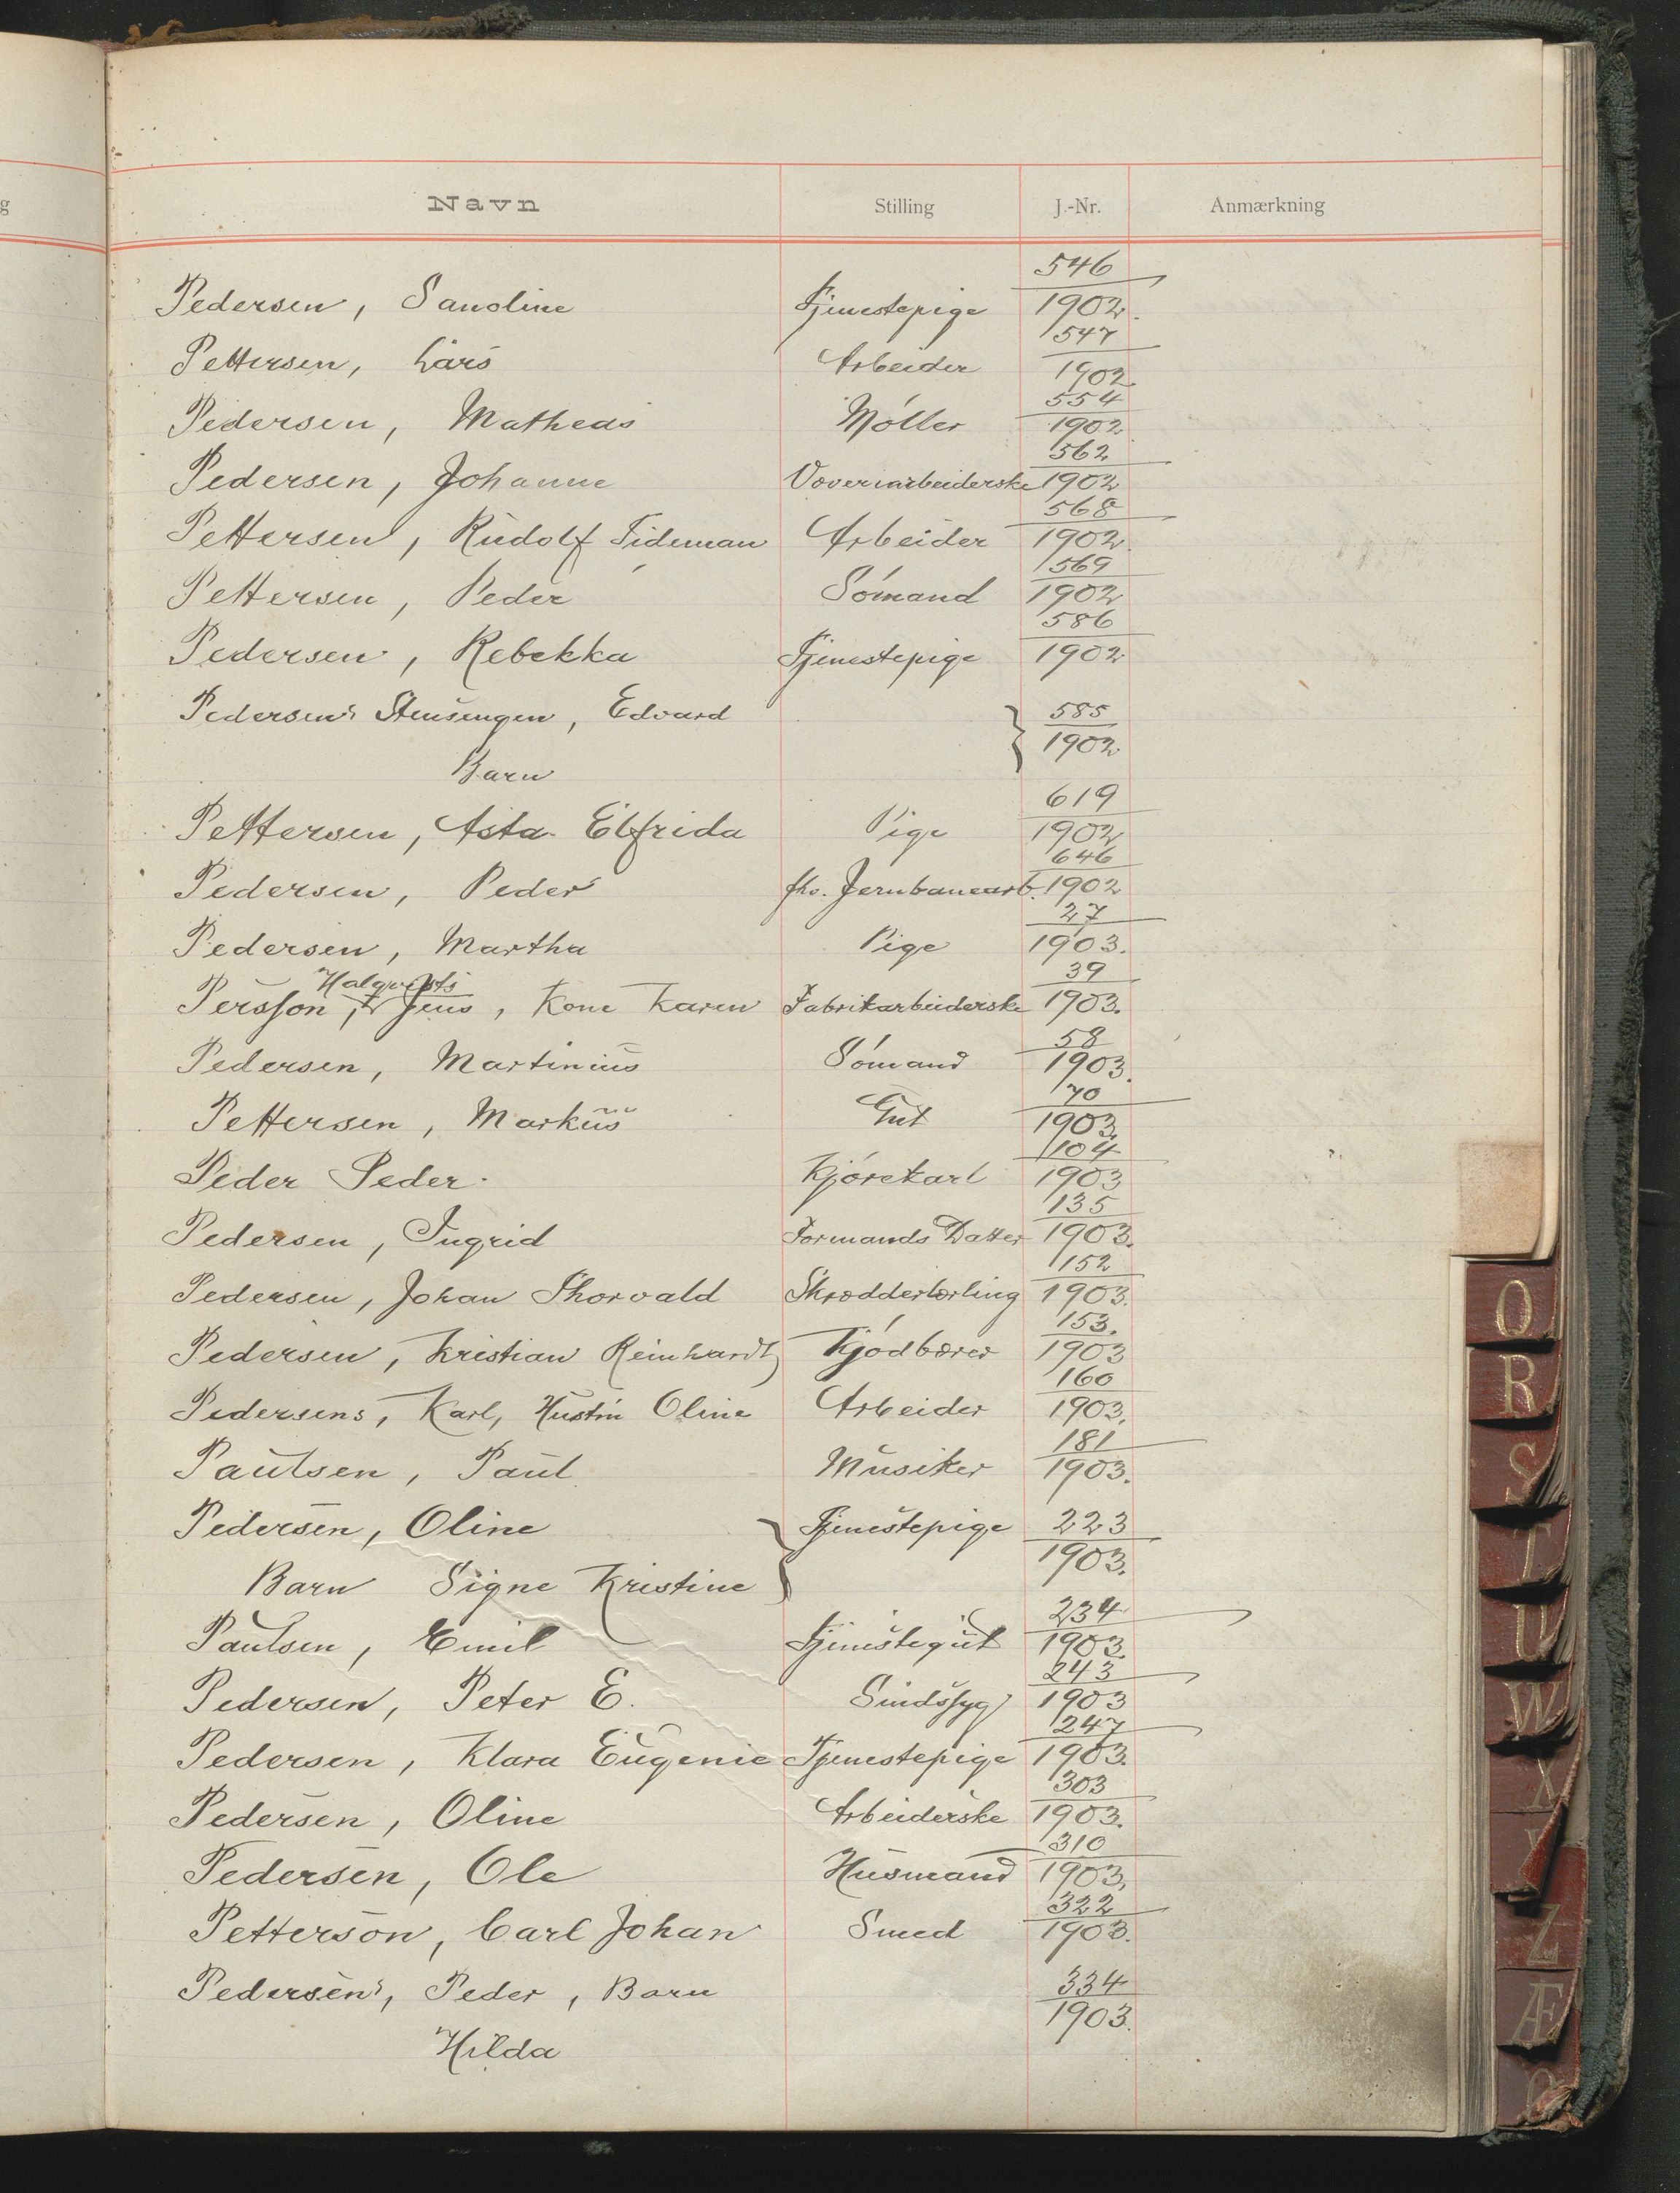 Navn Stilling J.-Nr. Anmærkning
Pedersen, Sanoline Tjenestepige 546/1902.
Pettersen, Lars Arbeider 547/1902.
Pedersen, Matheas Møller 554/1902
Pedersen, Johanne Væveriarbeiderske 562/1902
Pettersen, Rudolf Tideman Arbeider 568/1902
Pettersen, Peder Sømand 569/1902
Pedersen, Rebekka Tjenestepige 586/1902
Pedersens Stensengen, Edvard } 585/1902
Barn
Pettersen, Asta Elfrida Pige 619/1902
Pedersen, Peder fhv. Jernbanearb. 646/1902
Pedersen, Martha Pige 27/1903.
Halqvists
Persson, Jens, Kone Karen Fabrikarbeiderske 39/1903.
Pedersen, Martinius Sømand 58/1903.
Pettersen, Markus Gut 70/1903.
Peder Peder. Kjørekarl 104/1903
Pedersen, Ingrid Formands Datter 135/1903.
Pedersen, Johan Thorvald Skrædderlærling 152/1903.
Pedersen, Kristian Reinhardt Kjødbærer 153./1903
Pedersens, Karl, Hustru Oline Arbeider 160/1903.
Paulsen, Paul Musiker 181/1903.
Pedersen, Oline } Tjenestepige 223/1903.
Barn Signe Kristine
Paulsen, Emil Tjenestegut 234/1903.
Pedersen, Peter E. Sindssyg 243/1903
Pedersen, Klara Eugenie Tjenestepige 247/1903.
Pedersen, Oline Arbeiderske 303/1903.
Pedersen, Ole Husmand 310/1903.
Petterson, Carl Johan Smed 322/1903.
Pedersens, Peder, Barn 334/1903.
Hilda
Q
R
S
T
U
W
X
Y
Z
Æ
Ø